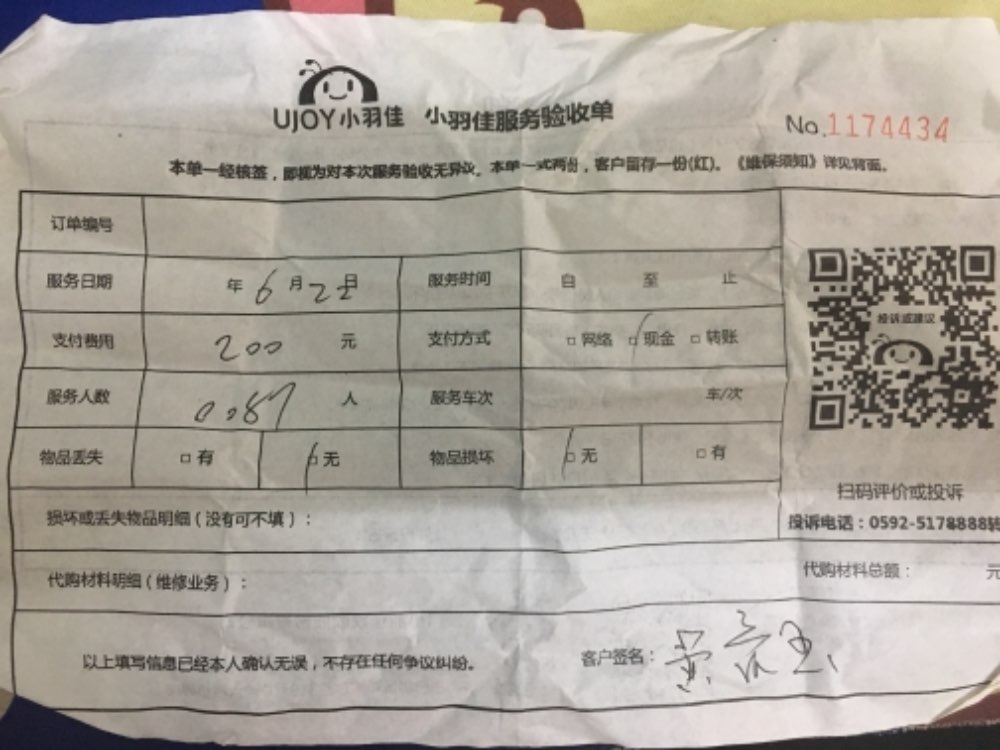 UJOY小羽佳 小羽佳服务验收单
No.1174434
本单一经核签，即视为对本次服务验收无异议。本单一式两份，客户留存一份(红)。《维保须知》详见背面。
订单编号
服务日期 年 6 月 22 日 服务时间 自 至 止
支付费用 200 元 支付方式 □网络 □现金 □转账
投诉或建议
服务人数 0.087 人 服务车次 车/次
物品丢失 □有 □无 物品损坏 □无 □有
扫码评价或投诉
损坏或丢失物品明细（没有可不填）：
投诉电话：0592-5178888转
代购材料明细（维修业务）： 代购材料总额： 元
以上填写信息已经本人确认无误，不存在任何争议纠纷。 客户签名：